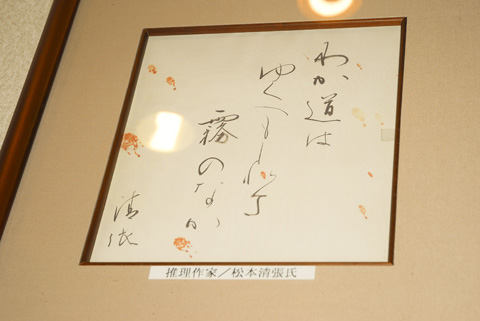 わが道は
ゆくへもしれず
霧のなか
清張
推理作家／松本清張氏